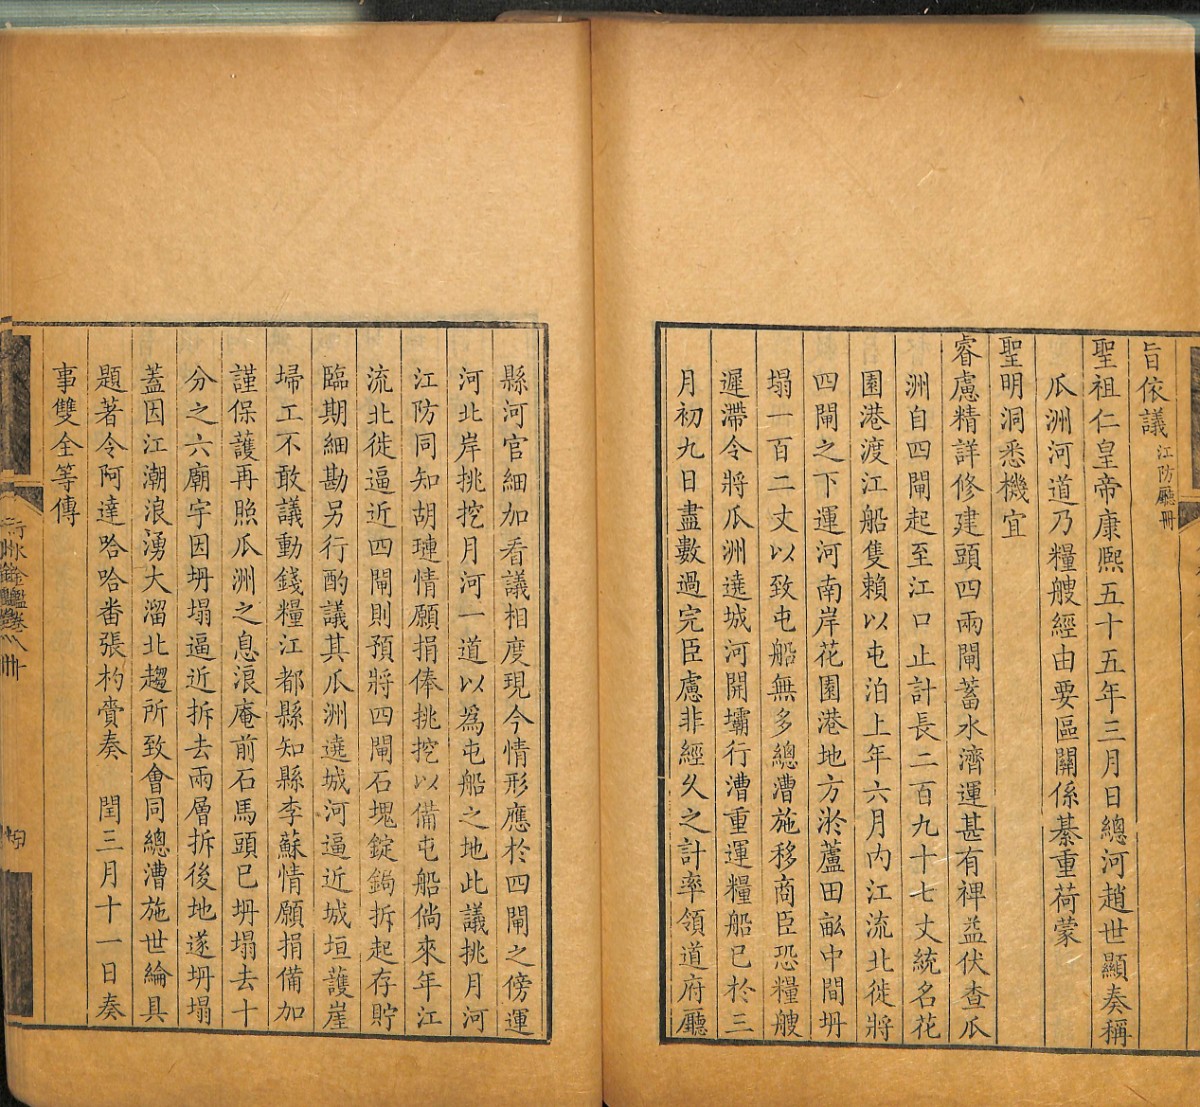 旨依議江防廳冊
聖祖仁皇帝康熙五十五年三月日總河趙世顯奏稱
瓜洲河道乃糧艘經由要區關係綦重荷蒙
聖明洞悉機宜
睿慮精詳修建頭四兩閘蓄水濟運甚有裨益伏查瓜
洲自四閘起至江口止計長二百九十七丈統名花
園港渡江船隻賴以屯泊上年六月內江流北徙將
四閘之下運河南岸花園港地方淤蘆田畝中間坍
塌一百二丈以致屯船無多總漕施移商臣恐糧艘
遲滯令將瓜洲遶城河開壩行漕重運糧船已於三
月初九日盡數過完臣慮非經久之計率領道府廳
縣河官細加看議相度現今情形應於四閘之傍運
河北岸挑挖月河一道以為屯船之地此議挑月河
江防同知胡璉情願捐俸挑挖以備屯船倘來年江
流北徙逼近四閘則預將四閘石塊錠鋦拆起存貯
臨期細勘另行酌議其瓜洲遶城河逼近城垣護崖
埽工不敢議動錢糧江都縣知縣李蘇情願捐備加
謹保護再照瓜洲之息浪庵前石馬頭已坍塌去十
分之六廟宇因坍塌逼近拆去兩層拆後地遂坍塌
蓋因江潮浪湧大溜北趨所致會同總漕施世綸具
題著令阿達哈哈番張杓賫奏 閏三月十一日奏
事雙全等傳